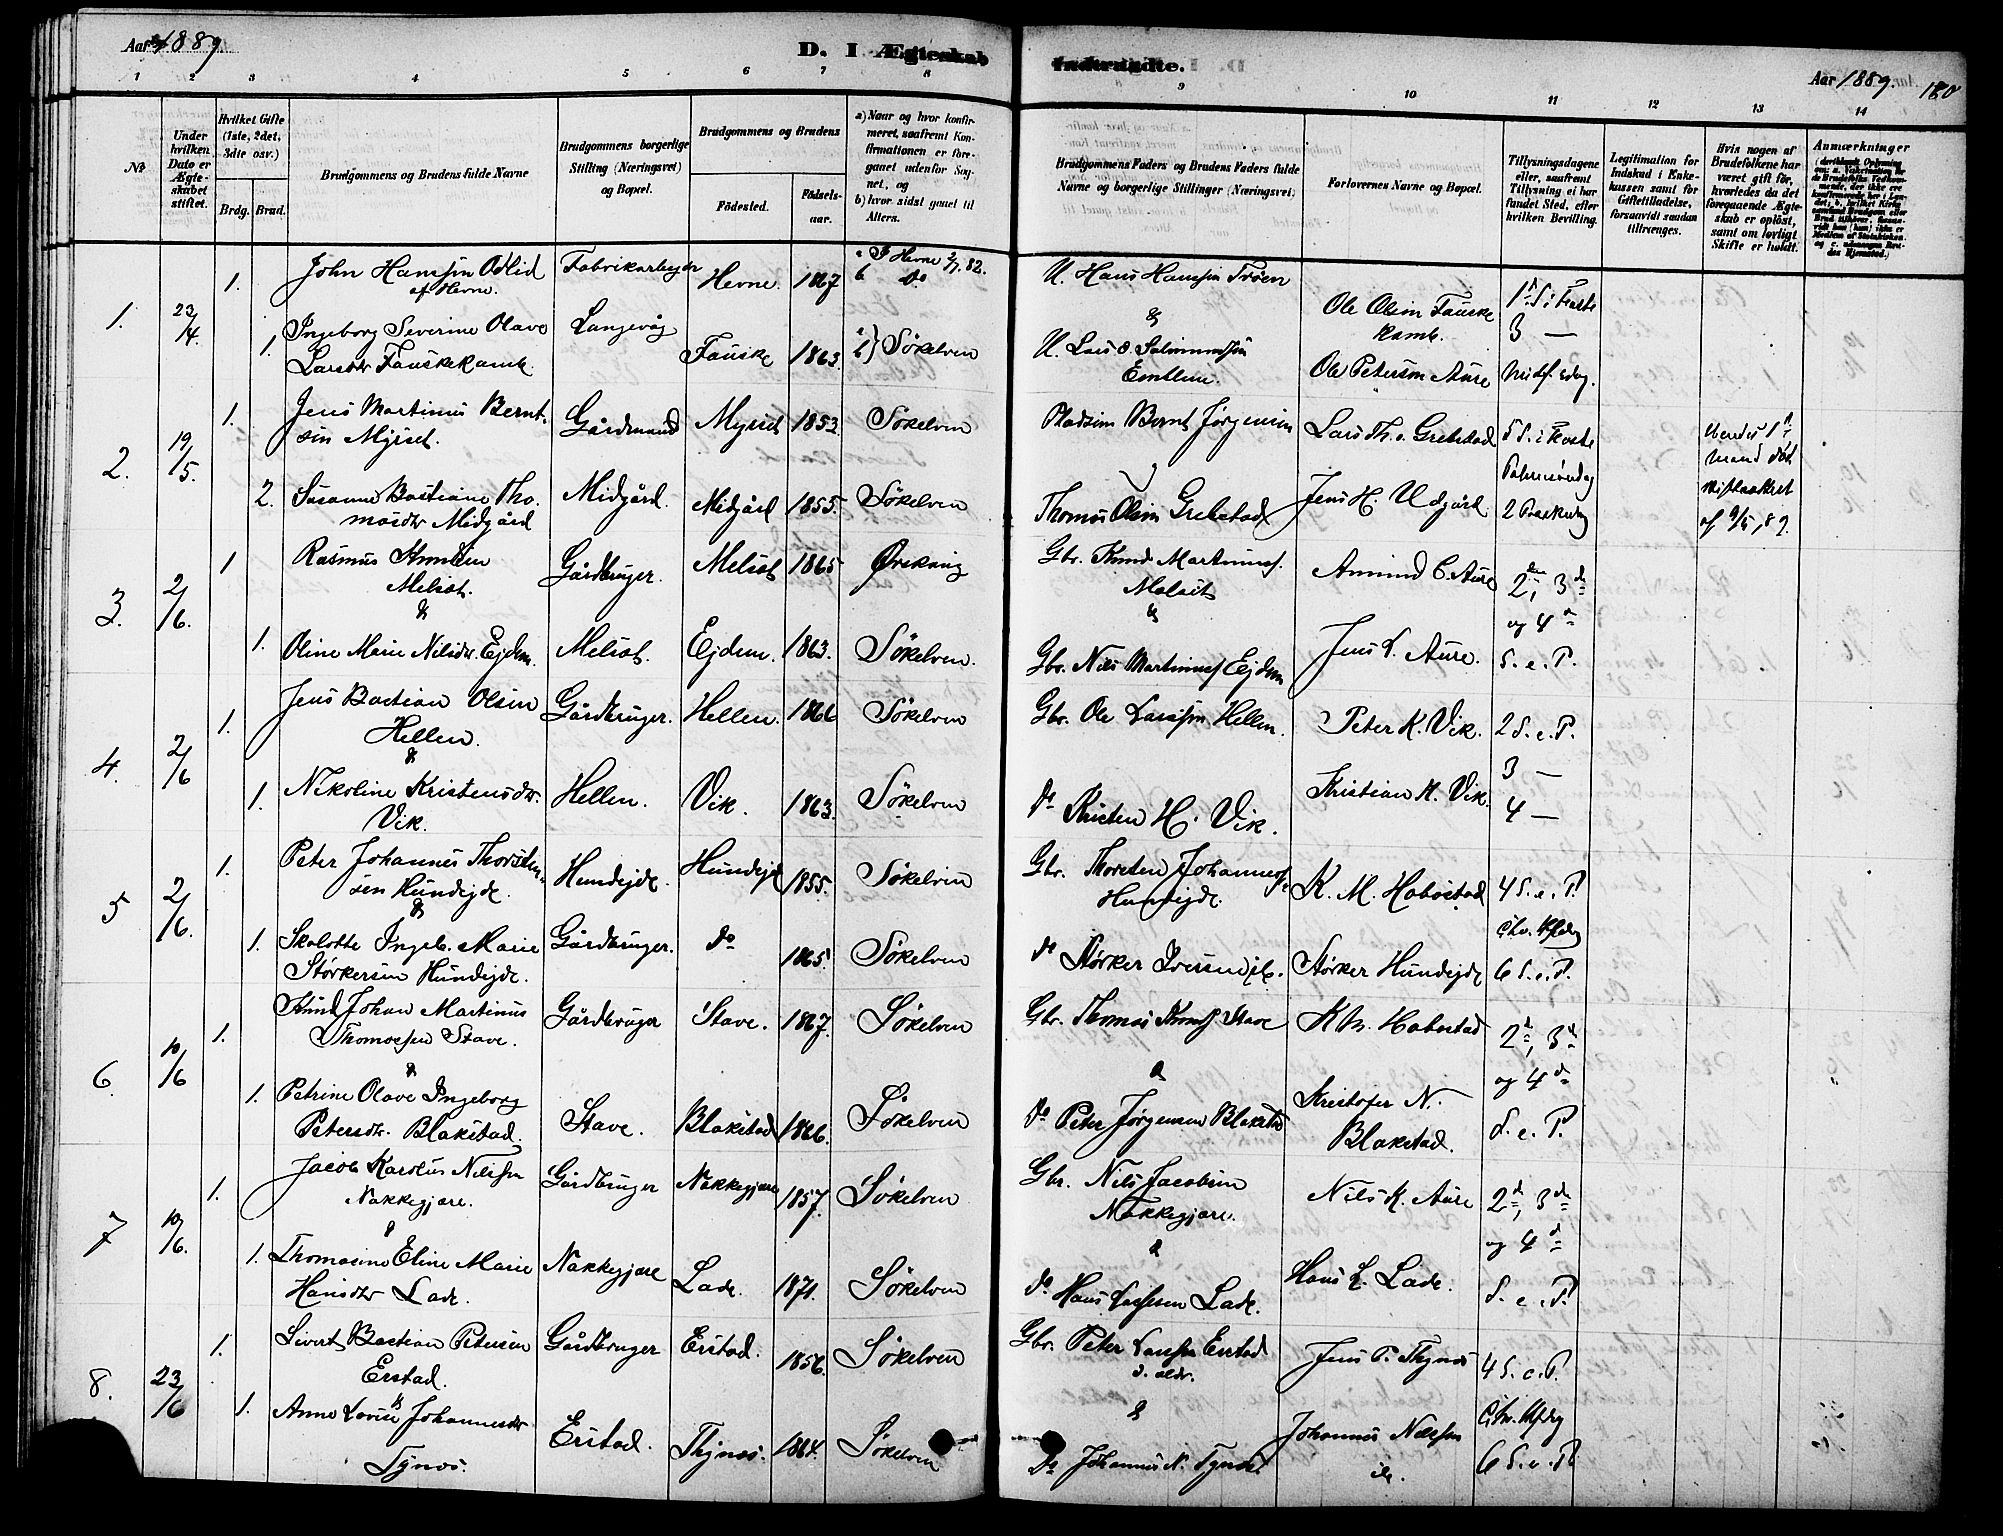 Aar 1889.
D. I Ægteskab Indtraadte.
Aar 1889.
180
1 2 3 4 5 6 7 8 9 10 11 12 13 14
No
Under hvilken Dato er Ægteskabet stiftet.
Hvilket Gifte (1ste, 2det, 3die osv.)
Brdg. Brud.
Brudgommens og Brudens fulde Navne
Brudgommens borgerlige Stilling (Næringsvei) og Bopæl.
Brudgommens og Brudens
Fødested.
Fødselsaar.
a) Naar og hvor konfirmeret, saafremt Konfirmationen er foregaaet udenfor Sognet, og
b) hvor sidst gaaet til Alters.
Brudgommens Faders og Brudens Faders fulde Navne og borgerlige Stillinger (Næringsvei)
Forlovernes Navne og Bopæl.
Tillysningsdagene eller, saafremt Tillysning ei har fundet Sted, efter hvilken Bevilling.
Legitimation for Indskud i Enkekassen samt for Giftetilladelse, forsaavidt saadan tiltrænges.
Hvis nogen af Brudefolkene har været gift før, hvorledes da det foregaaende Ægteskab er opløst, samt om lovligt Skifte er holdt.
Anmærkninger
1. 23/4 1. John Hanssen Odlid af Hevne. Fabrikarbeyder Hevne. 1867 a P Hevne 2/7 82. b do U. Hans Hanssen Trøen & Ole Olsen Fauskekamb. 1ste S. i Faste
1. Ingeborg Severine Olave Larsdtr Fauskekamb. Langevåg Fauske 1863. Søkelven U. Lars O. Salomonssen Emblem. Ole Petersen Aure 3 —
2. 19/5. 1. Jens Martinus Berntsen Myrset. Gårdmand Myrset 1853. Søkelven Pladsm Bernt Jørgensen Lars Th. Grebstad 5 S. i Faste Palmesøndag
2. Susanne Bastiane Thomasdtr Midgård Midgård. Midgård 1855. Søkelven Thomas Olsen Grebstad Jens H. Udgård 2 Paaskedag
3. 2/6. 1 Rasmus Knudsen Melsæt. & Gårdbruger. Melsæt 1865 Ørskoug Gbr. Knud Martinus. Melsæt & Amund C. Aure 2den, 3de og 4de
1. Oline Marie Nilsdtr. Ejdem. Melsæt. Ejdem. 1863. Søkelven. Gbr. Nils Martinus Ejdem Jens L. Aure. S. e. P.
4. 2/6 1. Jens Bastian Olsen Hellen. & Gårdbruger. Hellen. 1866 Søkelven Gbr. Ole Larssen Hellen. Peter K. Vik. 2 S. e. P.
1. Nikoline Kristensdtr. Vik. Hellen. Vik. 1863. Søkelven do Kristen H. Vik. Kristian K. Vik. 3 — 4 —
5 2/6. 1. Peter Johannes Thorstensen Hundejde. & Hundejde. Hundejde 1855. Søkelven Gbr. Thorsten Johannes Hundejde. K. M. Habostad 4 S. e. P.
1. Skolotte Ingeb. Marie Størkersen Hundejde. Gårdbruger. do 1865. Søkelven do Størker Iversen Størker Hundejde 6 S. e. P.
6. 10/6 1. Knud Johan Martinus Thomassen Stave. & Gårdbruger Stave. 1867. Søkelven Gbr. Thomas Knuds. Stave & K M. Habostad 2d, 3de og 4de
1. Petrine Olave Ingeborg Petersdtr. Blakstad. Stave. Blakstad 1866. Søkelven do Peter Jørgensen Blakstad Kristofer N. Blakstad. S. e. P.
7 10/6. 1. Jacob Karolus Nilssen Nakkegjære. & Gårdbruger Nakkegjære 1857. Søkelven Gbr. Nils Jacobsen Nakkegjære. & Nils K. Aure 2d, 3de og 4de
1. Thomasine Eline Marie Hansdtr Lade. Nakkegjære Lade. 1871. Søkelven do Hans Larssen Lade. Hans L. Lade. S. e. P.
8. 23/6 1. Sivert Bastian Petersen Erstad. & Gårdbruger Erstad. 1856. Søkelven Gbr. Peter Larssen Erstad & Jens P. Thynes 4 S. e. P.
1. Anne Lovise Johannesdtr Tynes. Erstad. Thynes. 1864. Søkelven do Johannes N. Tynes Johannes Nilssen 6 S. e. P